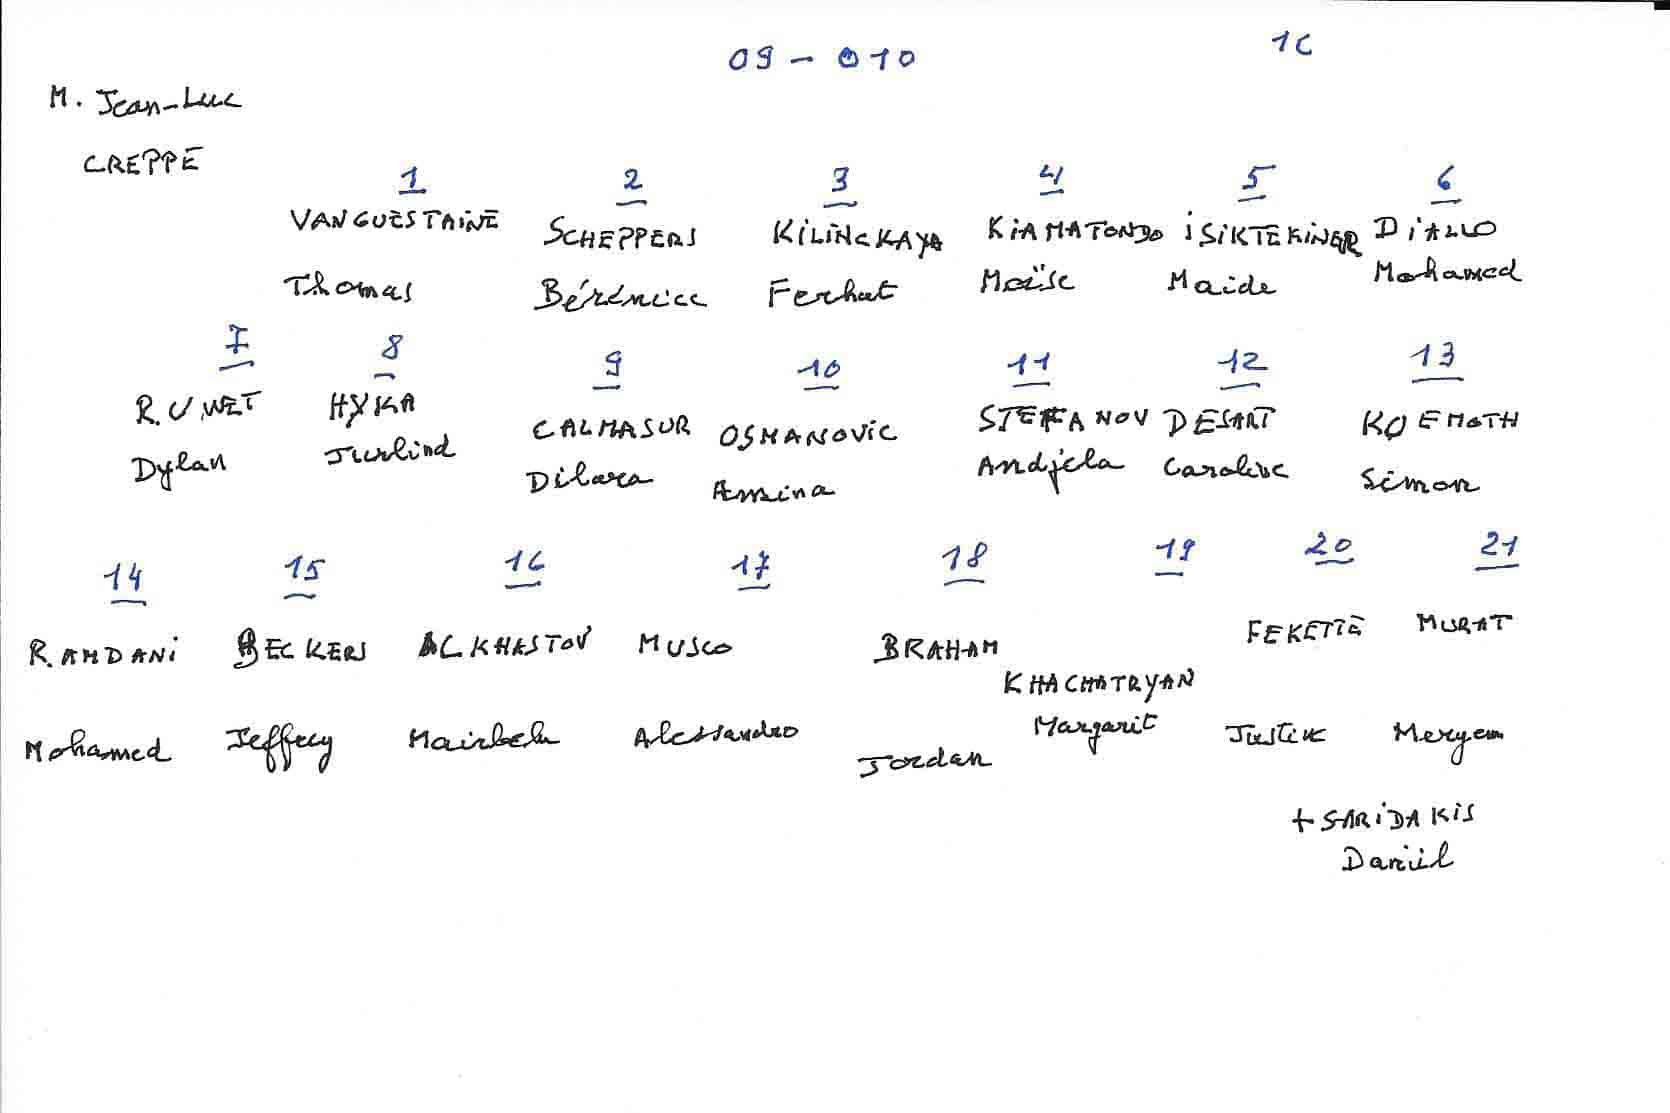 09-010
1C
M. Jean-Luc
CREPPE
1 2 3 4 5 6
VANGUESTAINE SCHEPPERS KILINCKAYA KIAMATONDO ISIKTEKINER DIALLO
Thomas Bérénice Ferhat Moïse Maide Mohamed
7 8 9 10 11 12 13
RUWET HYKA CALMASUR OSMANOVIC STEFANOV DESART KOEMOTH
Dylan Jurlind Dilara Amina Andjela Caroline Simon
14 15 16 17 18 19 20 21
RAMDANI BECKERS ALKHASTOV MUSCO BRAHAM KHACHATRYAN FEKETTE MURAT
Mohamed Jeffrey Alessandro Jordan Margarit Justine Meryem
+ SARIDAKIS
Daniil